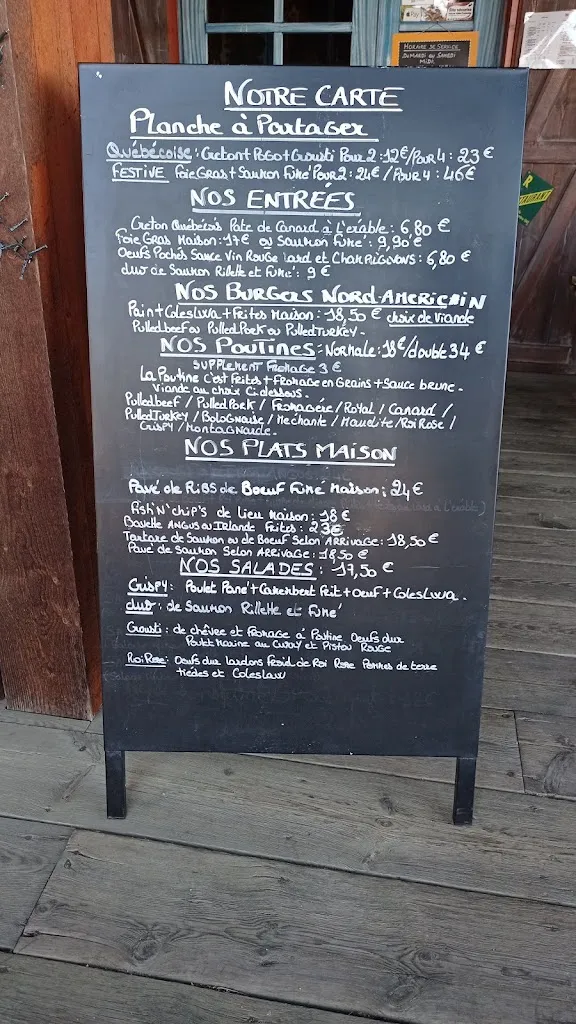 HORAIRE DE SERVICE
DU MARDI AU SAMEDI
MIDI
NOTRE CARTE
Planche à Partager
Québécoise : Creton + Pogo + Crousti Pour 2 : 12€ / Pour 4 : 23 €
FESTIVE Foie Gras + Saumon Fumé Pour 2 : 24€ / Pour 4 : 46€
NOS ENTRÉES
Creton Québécois Pate de Canard à L'érable : 6,80 €
Foie Gras Maison : 17€ ou Saumon Fumé : 9,90€
Oeufs Pochés Sauce Vin Rouge Lard et Champignons : 6,80 €
duo de Saumon Rillette et Fumé : 9 €
NOS BURGERS NORD-AMERICAIN
Pain + Coleslaw + Frites Maison : 18,50 € choix de Viande
Pulled beef ou Pulled Pork ou Pulled Turkey -
NOS POUTINES - Normale : 18€/double 34 €
SUPPLEMENT FROMAGE 3 €
La Poutine C'est Frites + Fromage en Grains + Sauce brune -
Viande au choix Ci-dessous -
Pulled beef / Pulled Pork / Fromagère / Royal / Canard /
Pulled Turkey / Bolognaise / Mechante / Maudite / Roi Rose /
Crispy / Montagnarde -
NOS PLATS MAISON
Pavé de Ribs de Boeuf Fumé Maison : 24€
Fish'N'chip's de Lieu Maison : 18 €
Bavette ANGUS ou Irlande Frites : 23€
Tartare de Saumon ou de Boeuf Selon ARRIVAGE : 18,50 €
Pavé de Saumon Selon ARRIVAGE : 18,50 €
NOS SALADES : 17,50 €
Crispy : Poulet Pané + Camembert Frit + Oeuf + Coleslaw -
duo : de Saumon Rillette et Fumé
Crousti : de chèvre et Fromage à Poutine Oeufs dur
Poulet Mariné au Curry et Pistou Rouge
Roi Rose : Oeufs dur Lardons Froid de Roi Rose Pommes de terre
tièdes et Coleslaw